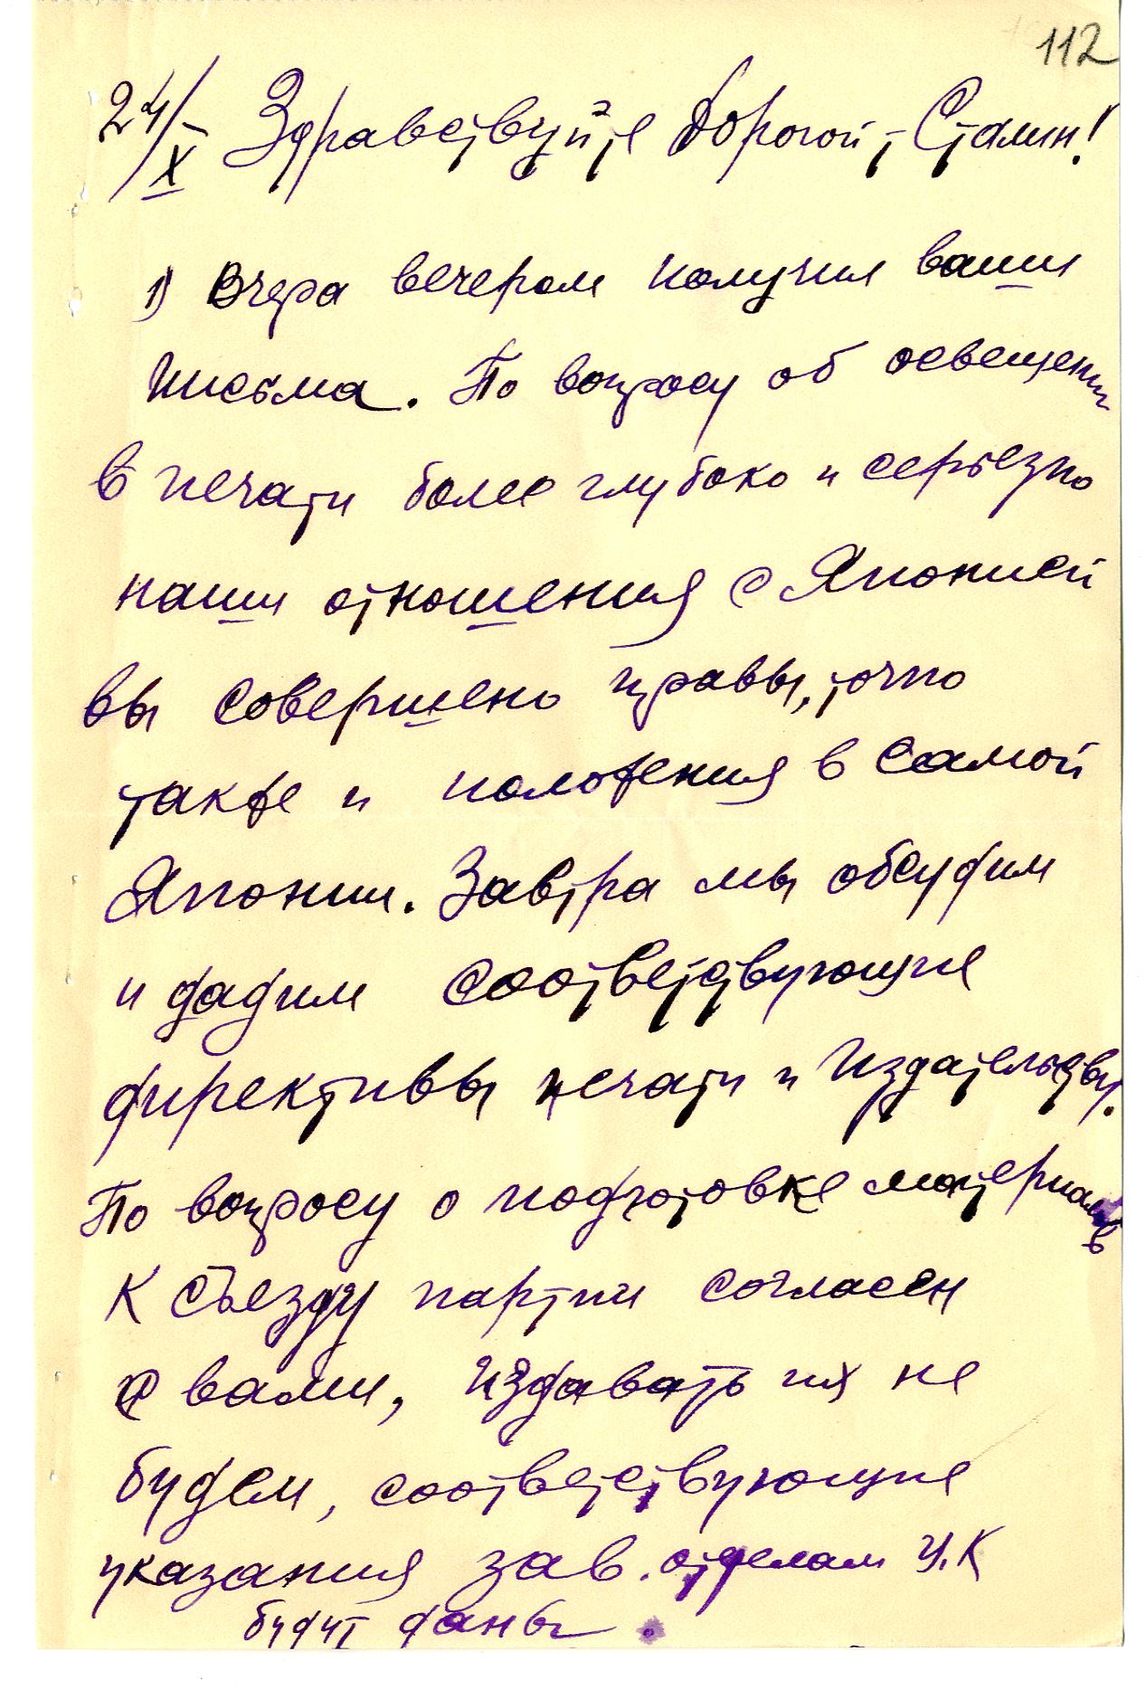 112
24/X Здравствуйте дорогой т Сталин!
1) Вчера вечером получил ваши
письма. По вопросу об освещении
в печати более глубоко и серьезно
наши отношения с Японией
вы совершено правы, точно
также и положения в самой
Японии. Завтра мы обсудим
и дадим соответствующие
директивы печати и издательству.
По вопросу о подготовке материалов
к съезду партии согласен
с вами, издавать их не
будем, соответствующие
указания зав. отделам Ц.К
будут даны.